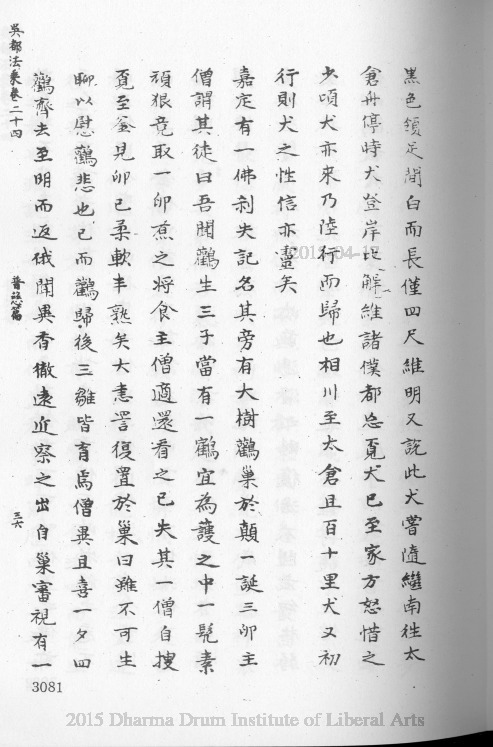 黑色領足間白而長僅四尺維明又說此犬嘗隨繼南往太
倉舟停時犬登岸比解維諸僕都忘覓犬已至家方怒惜之
少頃犬亦來乃陸行而歸也相川至太倉且百十里犬又初
行則犬之性信亦靈矣
嘉定有一佛剎失記名其旁有大樹鸛巢於顛一誕三卵主
僧謂其徒曰吾聞鸛生三子當有一鶴宜為護之中一髡素
頑狠竟取一卵煮之將食主僧適還看之已失其一僧自搜
覓至釜見卵已柔軟丰熟矣大恚詈復置於巢曰雖不可生
聊以慰鸛悲也已而鸛歸後三雛皆育焉僧異且喜一夕四
鸛齊去至明而返俄聞異香徹遠近察之出自巢審視有一
吳都法乘卷二十四
普慈篇
三六
3081
2015-04-17
2015 Dharma Drum Institute of Liberal Arts